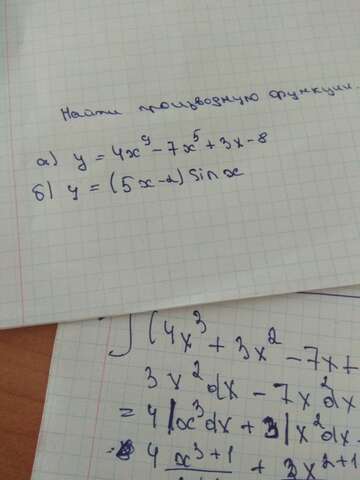 Найти производную функции.
а) y = 4x⁹ - 7x⁵ + 3x - 8
б) y = (5x - 2) sin x
∫(4x³ + 3x² - 7x +
3x²dx - 7x²dx
= 4∫x³dx + 3∫x²dx
4 x³⁺¹ + 3x²⁺¹